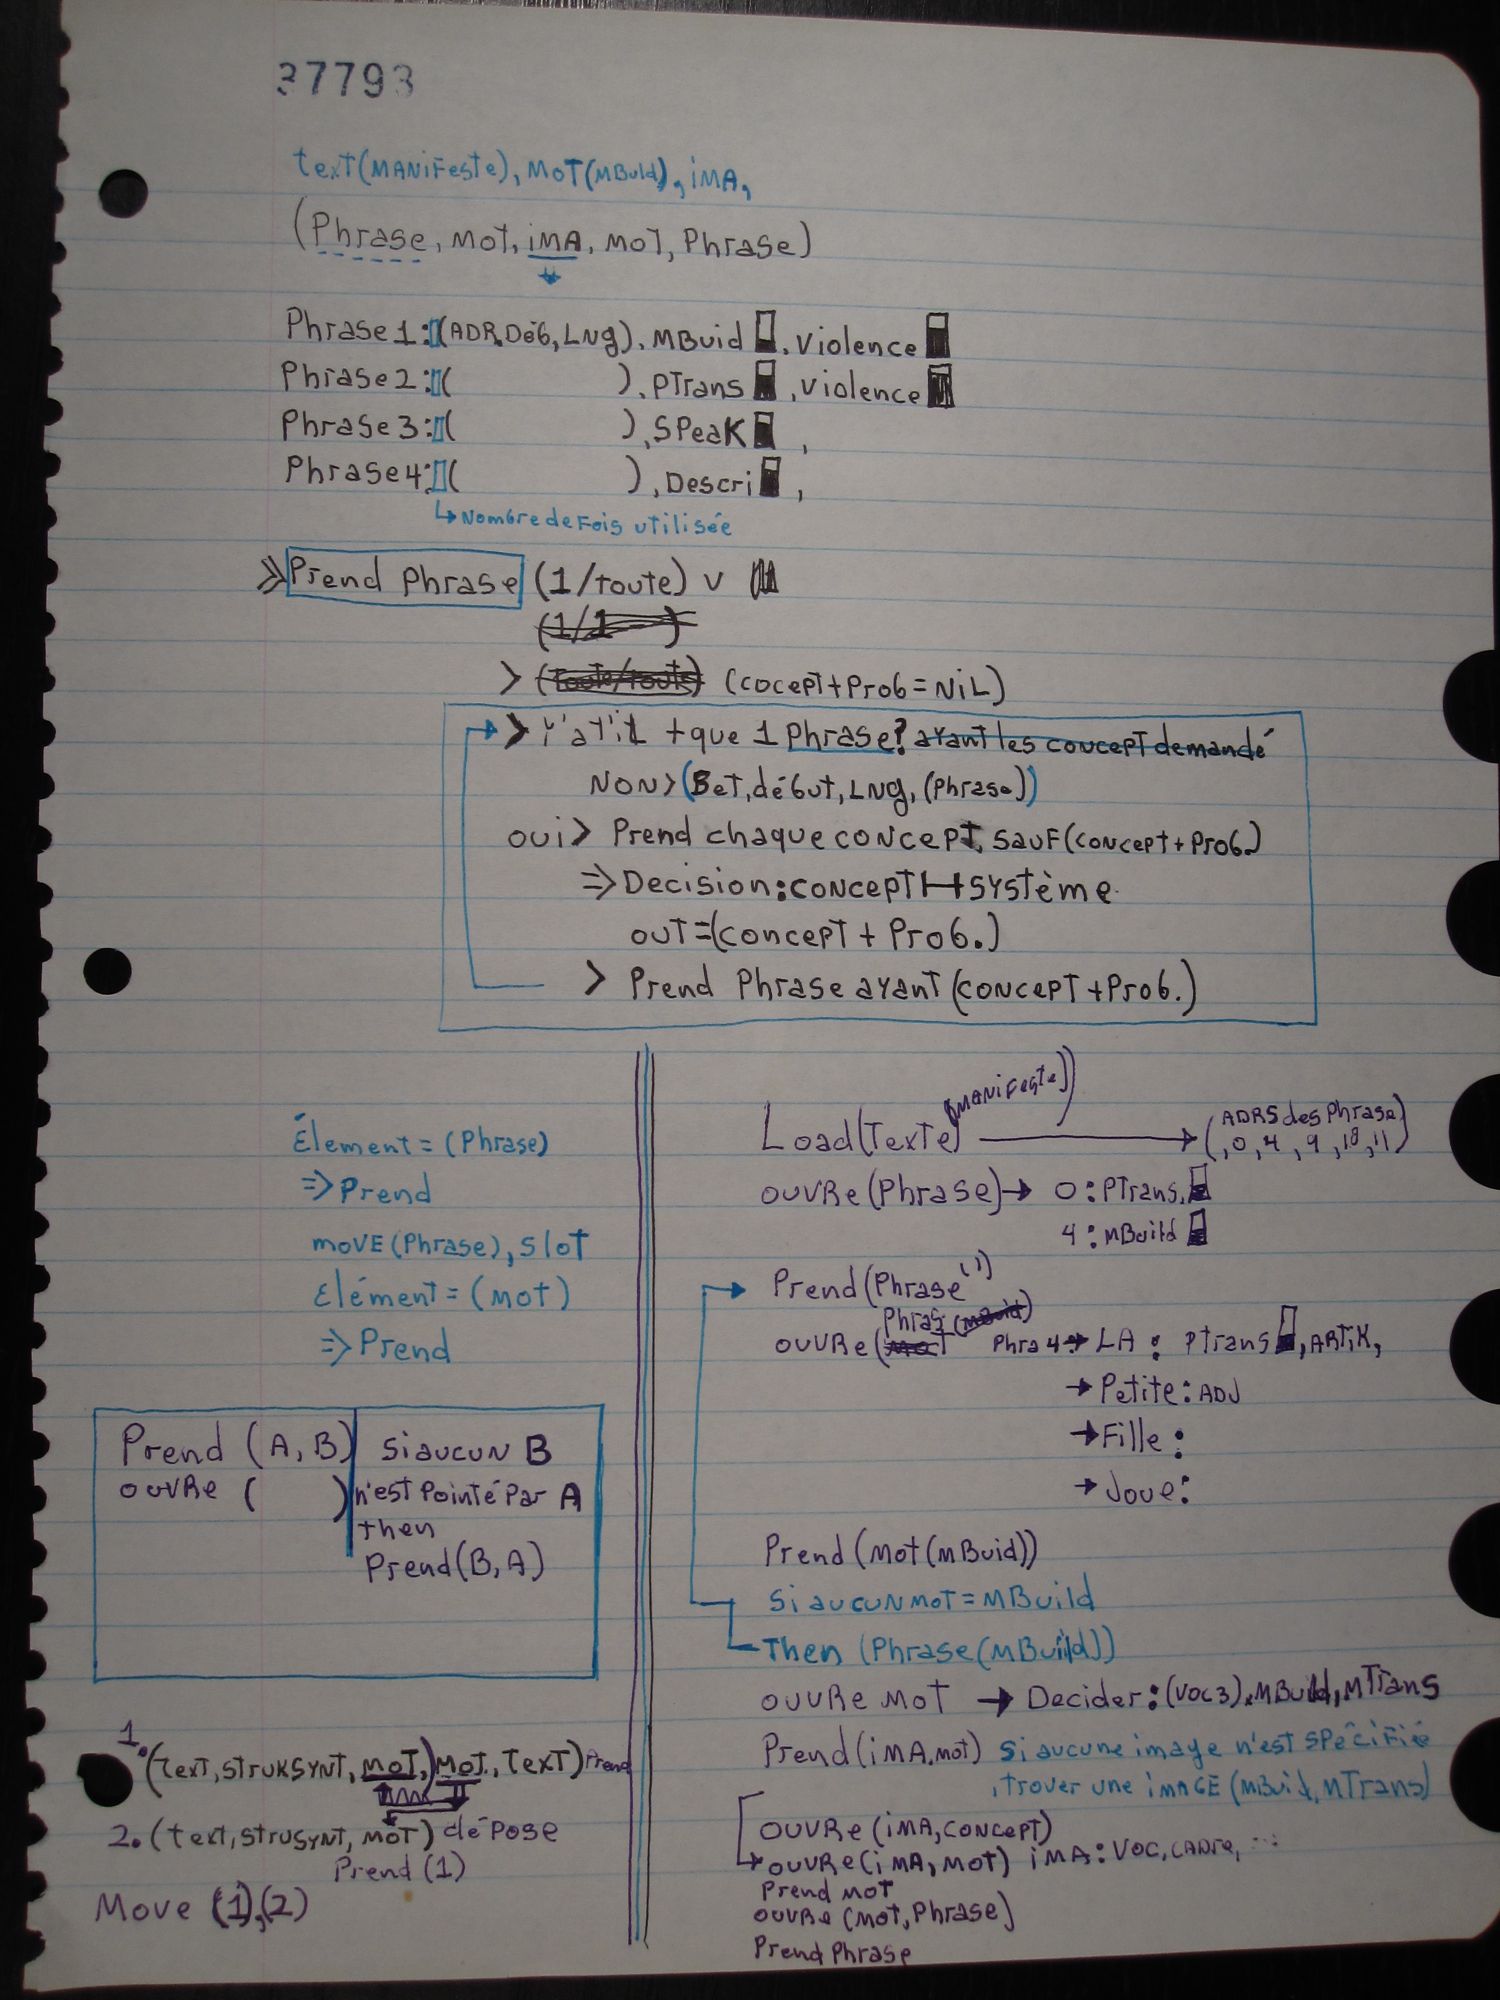 37793
text(MANiFeste), MoT(MBuld), iMA,
(Phrase, MoT, iMA, MoT, Phrase)
Phrase1:(ADR.Déb, LNg). MBuid, Violence
Phrase2:( ), PTrans, violence
Phrase3:( ), SPeaK,
Phrase4:( ), Descri,
↳Nombre de Fois utilisée
>> Prend Phrase (1/toute) v
(1/1 )
> (toute/toute) (cocept+Prob=NiL)
> Y'at'il +que 1 Phrase? ayant les concept demandé
NoN> (Bet, début, LNg, (Phrase))
oui> Prend chaque concept, sauf(concept+Prob.)
=> Decision: concept H système.
out=(concept + Prob.)
> Prend Phrase ayant (concept +Prob.)
Élement = (Phrase)
=> Prend
move(Phrase), Slot
Elément = (mot)
=> Prend
Prend (A, B)
ouvre ( )
Si aucun B
n'est Pointé Par A
then
Prend(B, A)
1. (text, STRUKSYNT, MoT,) MoT., TexT) Prend
2. (text, STRUSYNT, MoT) dépose
Prend (1)
Move (1),(2)
Load(Texte) (MANiFeste)) → (ADRS des Phrase)
(, 0, 4, 9, 18, 11)
ouvre(Phrase)→ 0: PTrans.
4: MBuild
Prend(Phrase(1)
Phras(MBuid)
ouvre(MoT Phra 4→ LA : PTrans, ARTiK,
→ Petite: ADJ
→ Fille :
→ Joue:
Prend(Mot(MBuid))
Si aucun mot = MBuild
Then (Phrase(MBuild))
ouvre mot → Decider: (voc3). MBuld, MTrans
Prend(iMA. mot) Si aucune image n'est spécifiée
, trover une iMAGE (MBuid, MTrans)
ouvre(iMA, concept)
→ ouvre(iMA, MoT) iMA: voc, cadre, ...
Prend mot
ouvre (mot, Phrase)
Prend Phrase